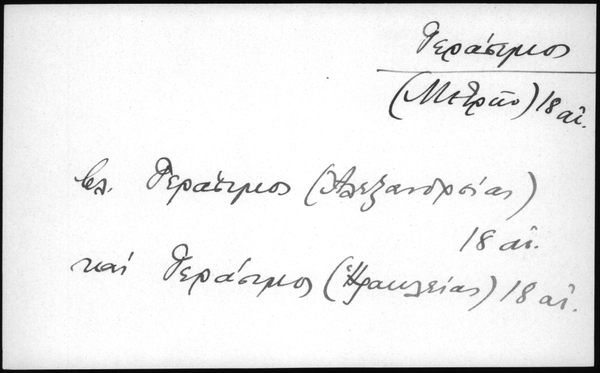 Γεράσιμος
(Μητρπ) 18 αἰ.
βλ. Γεράσιμος (Ἀλεξανδρείας)
18 αἰ.
καί Γεράσιμος (Ἡρακλείας) 18 αἰ.